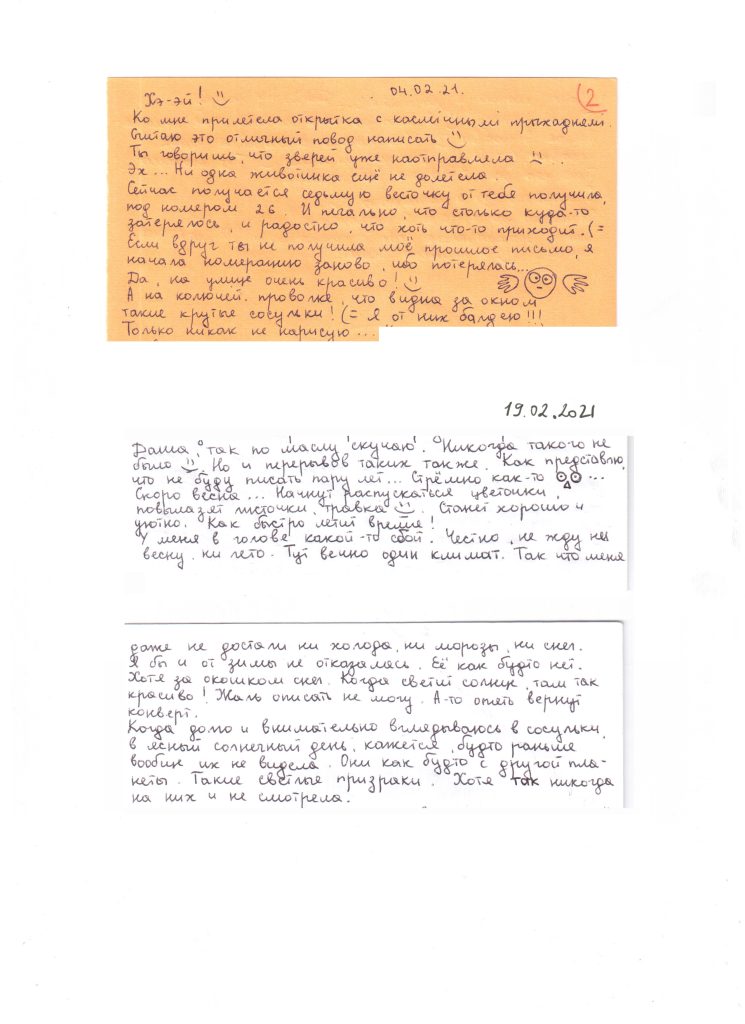 04.02.21.
(2
Хэ-эй!
Ко мне прилетела открытка с касмічнымі прыхаднямі.
Считаю это отличный повод написать
Ты говоришь, что зверей уже наотправляла
Эх... Ни одна животинка ещё не долетела.
Сейчас получается седьмую весточку от тебя получила,
под номером 26. И печально, что столько куда-то
затерялось, и радостно, что хоть что-то приходит. (=
Если вдруг ты не получила моё прошлое письмо, я
начала нумерацию заново, ибо потерялась...
Да, на улице очень красиво!
А на колючей проволке, что видна за окном
такие крутые сосульки! (= Я от них балдею!!!
Только никак не нарисую...
19.02.2021
Даша, так по маслу "скучаю". Никогда такого не
было. Но и перерывов таких также. Как представлю,
что не буду писать пару лет... Стрёмно как-то ...
Скоро весна... Начнут распускаться цветочки,
повылазят листочки, травка. Станет хорошо и
уютно. Как быстро летит время!
У меня в голове какой-то сбой. Честно, не жду ни
весну, ни лето. Тут вечно один климат. Так что меня
даже не достали ни холода, ни морозы, ни снег.
Я бы и от зимы не отказалась. Её как будто нет.
Хотя за окошком снег. Когда светит солнце, там так
красиво! Жаль описать не могу. А-то опять вернут
конверт.
Когда долго и внимательно вглядываюсь в сосульки,
в ясный солнечный день, кажется, будто раньше
вообще их не видела. Они как будто с другой пла-
неты. Такие светлые призраки. Хотя так никогда
на них и не смотрела.